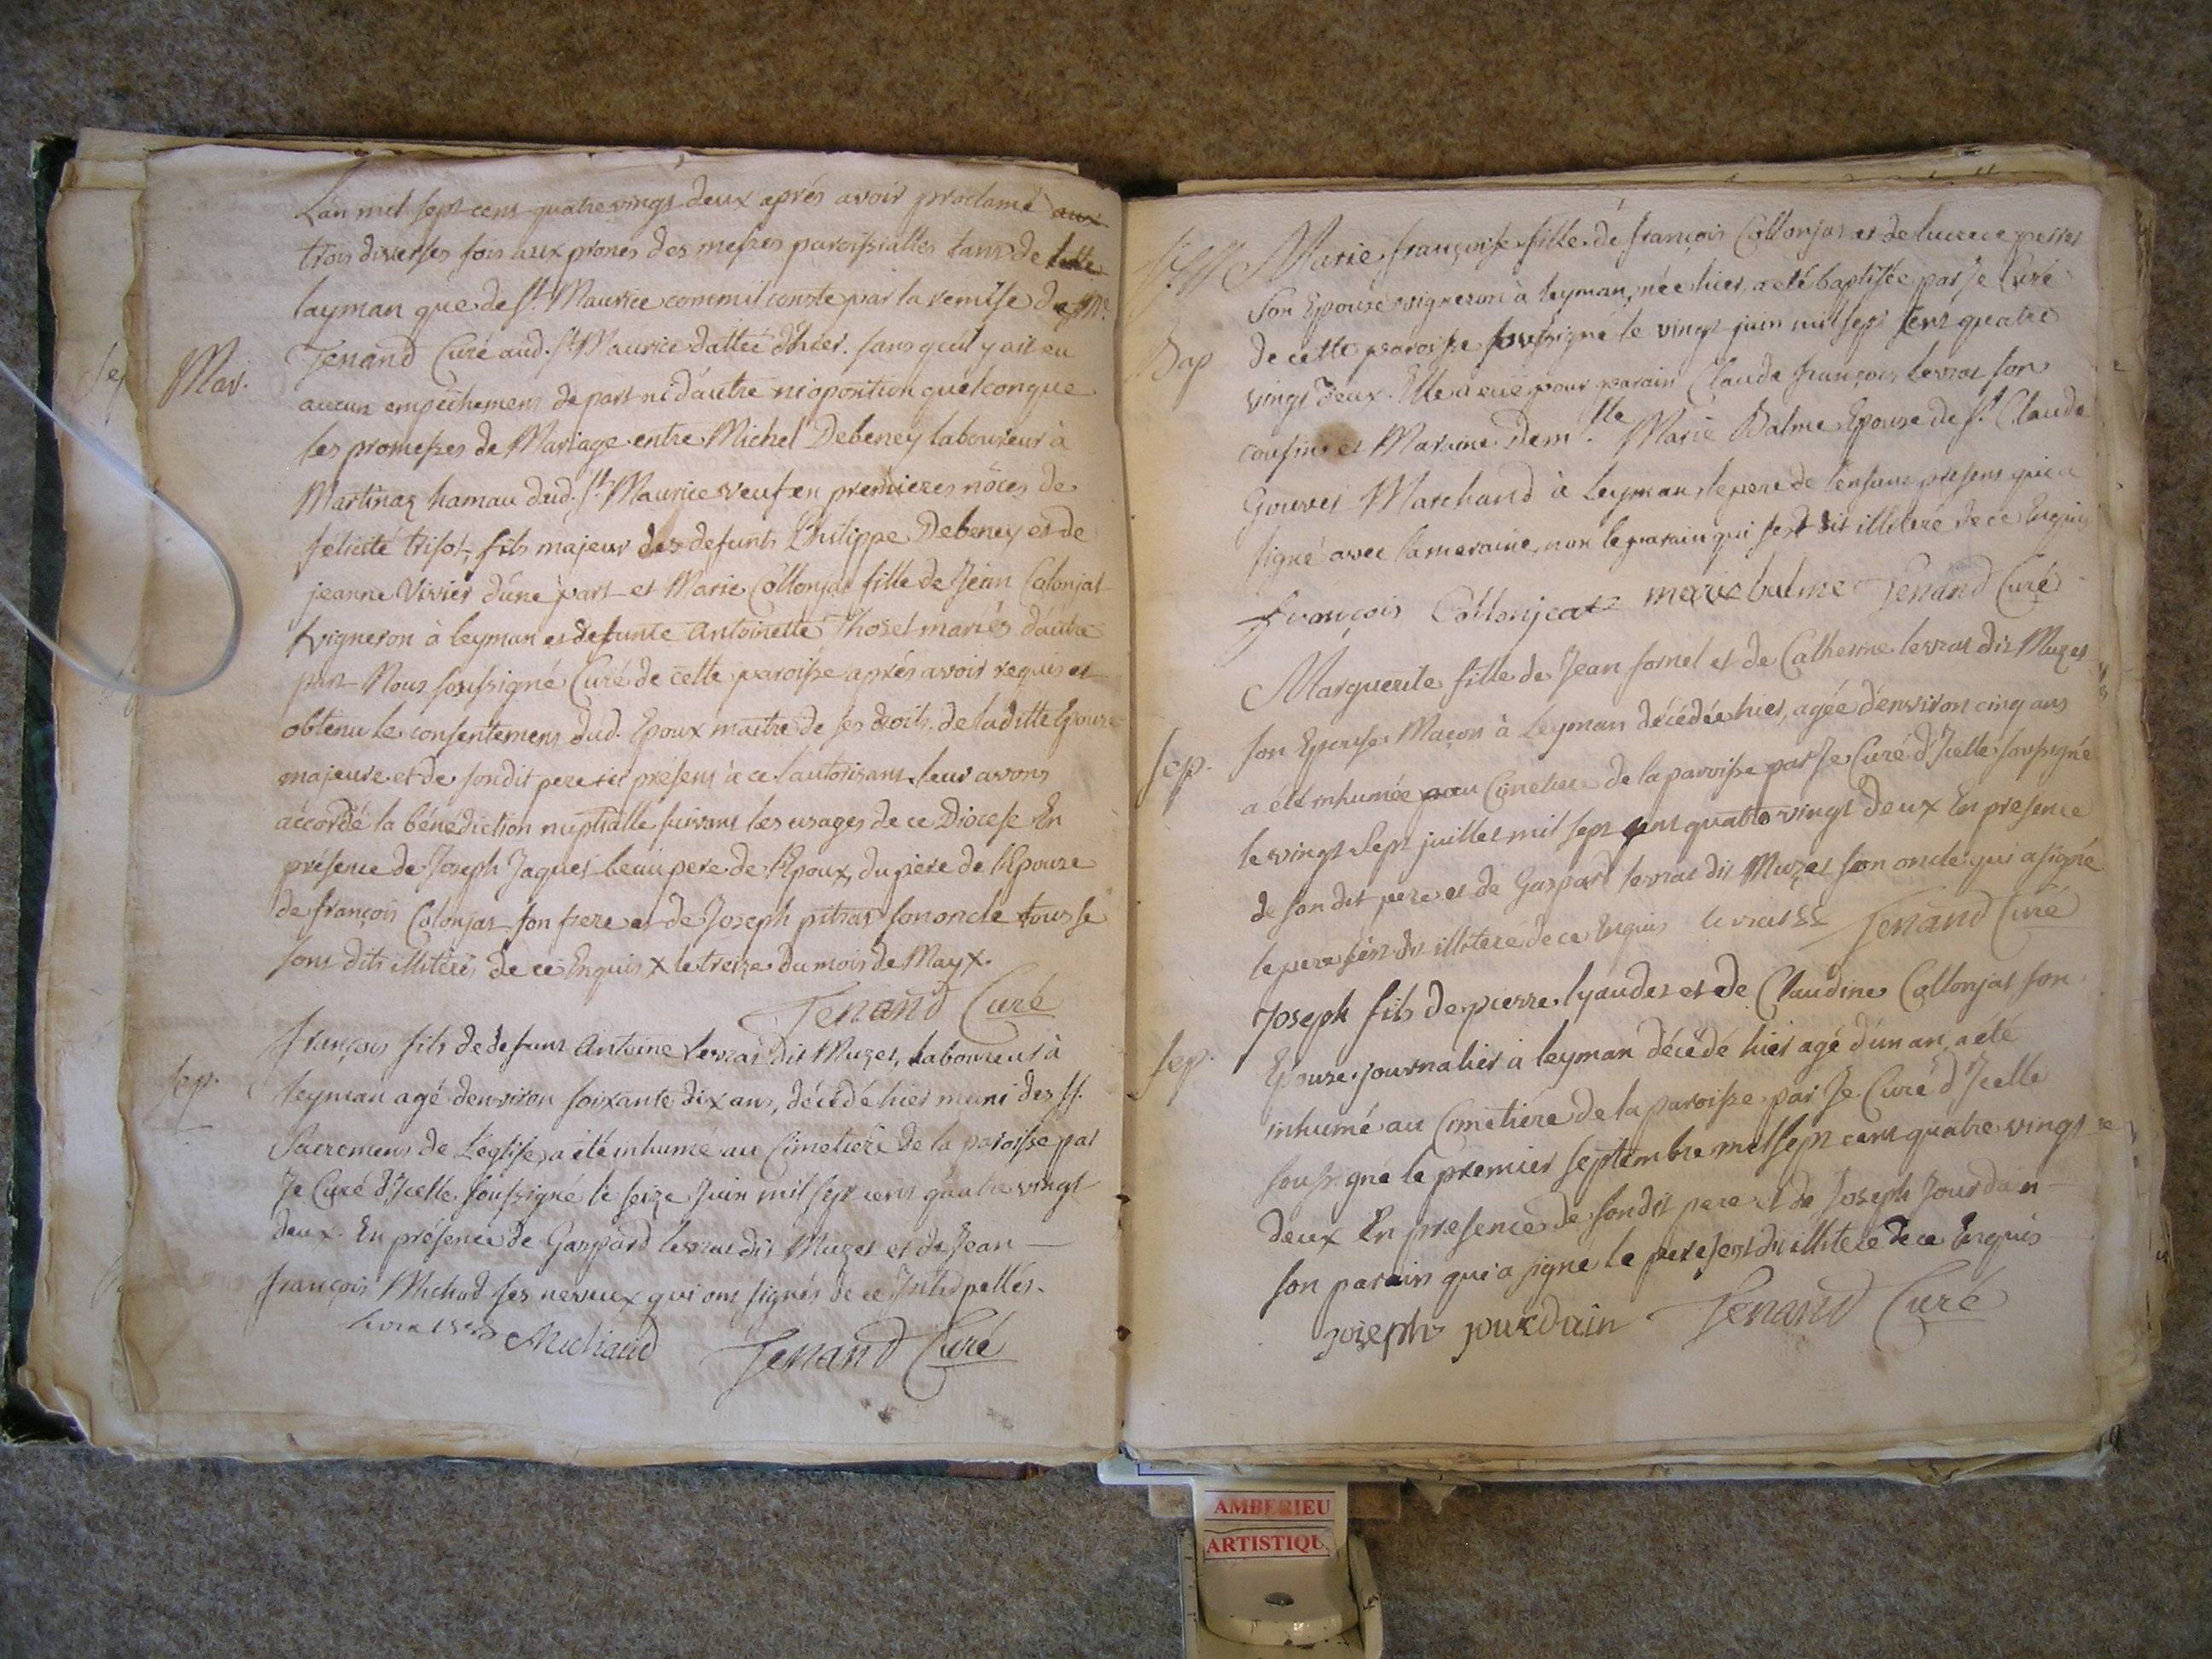 L'an mil sept cent quatre vingt deux aprés avoir proclamé aux
trois diverses fois aux prones des messes paroissialles tant de
layman que de St. Maurice commil conste par la remise de Mre.
Tenand Curé aud. St Maurice dattée d'hier. sans qu'il y ait eu
Mar.
aucun empêchement de part ni d'autre ni oposition quelconque
les promesses de Mariage entre Michel Debeney laboureur à
Martinaz hamau dud. St. Maurice veuf en premieres nôces de
félicité trisot, fils majeur des defunts Philippe Debeney et de
jeanne Vivier d'une part et Marie Collonjat fille de Jean Colonjat
vigneron à leyman et defunte Antoinette Thoset mariés d'autre
part Nous soussigné Curé de cette paroisse aprés avoir requis et
obtenu le consentement dud. Epoux maitre de ses droits, de laditte Epouze
majeure et de sondit pere ici présent à ce l'autorisant leur avons
accordé la bénédiction nuptialle suivant les usages de ce Diocese En
présence de Joseph Jaquet beau pere de l'Epoux, du père de l'Epouze
de françois Colonjat son frere et de Joseph pitrat son oncle tous se
sont dits illiterés de ce Enquis X le treize du mois de May X.
Tenand Curé
françois fils de defunt Antoine levrat dit Muzet, laboureur à
Sep.
leyman agé denviron soixante dix ans, décédé hier muni des SS.
Sacremens de L'eglise, a été inhumé au Cimetiere de la paroisse par
Je Curé d'Icelle soussigné le seize Juin mil sept cent quatre vingt
deux. En présence de Gaspard levrat dit Muzet et de Jean
françois Michod ses neveux qui ont signés de ce Interpellés.
levrat Michaud Tenand Curé
Marie françoise fille de françois Collonjat et de lucrece perret
son Epouse vigneron à leyman, née hier, a été baptisée par Je Curé
Bap
de cette paroisse soussigné le vingt juin mil sept cent quatre
vingt deux. Elle a eue pour parain Claude françois levrat son
cousin et Maraine Demlle. Marie Balme Epouse de Sr. Claude
Gouvet Marchand à leyman, le pere de l'enfant present qui a
signé avec la maraine, non le parain qui s'est dit illiteré de ce Enquis
françois Collonjeat marie balme Tenand Curé
Marguerite fille de Jean fornet et de Catherine levrat dit Muzet
son Epouse Maçon à leyman décédée hier, agée d'environ cinq ans
Sep.
a été inhumée au Cimetiere de la paroisse par Je Curé d'Icelle soussigné
le vingt Sept juillet mil sept cent quatre vingt deux En presence
de son dit pere et de Gaspard levrat dit Muzet son oncle qui a signé
le pere s'est dit illiteré de ce Enquis levrat Tenand Curé
Joseph fils de pierre lyaudet et de Claudine Collonjat son
Sep.
Epouze journalier à leyman décédé hier agé d'un an, a été
inhumé au Cimetiére de la paroisse par Je Curé d'Icelle
soussigné le premier septembre mil sept cent quatre vingt
deux En presence de sondit pere et de Joseph Jourdain
son parain qui a signé le pere s'est dit illiteré de ce Enquis
joseph jourdain Tenand Curé
AMBERIEU
ARTISTIQU